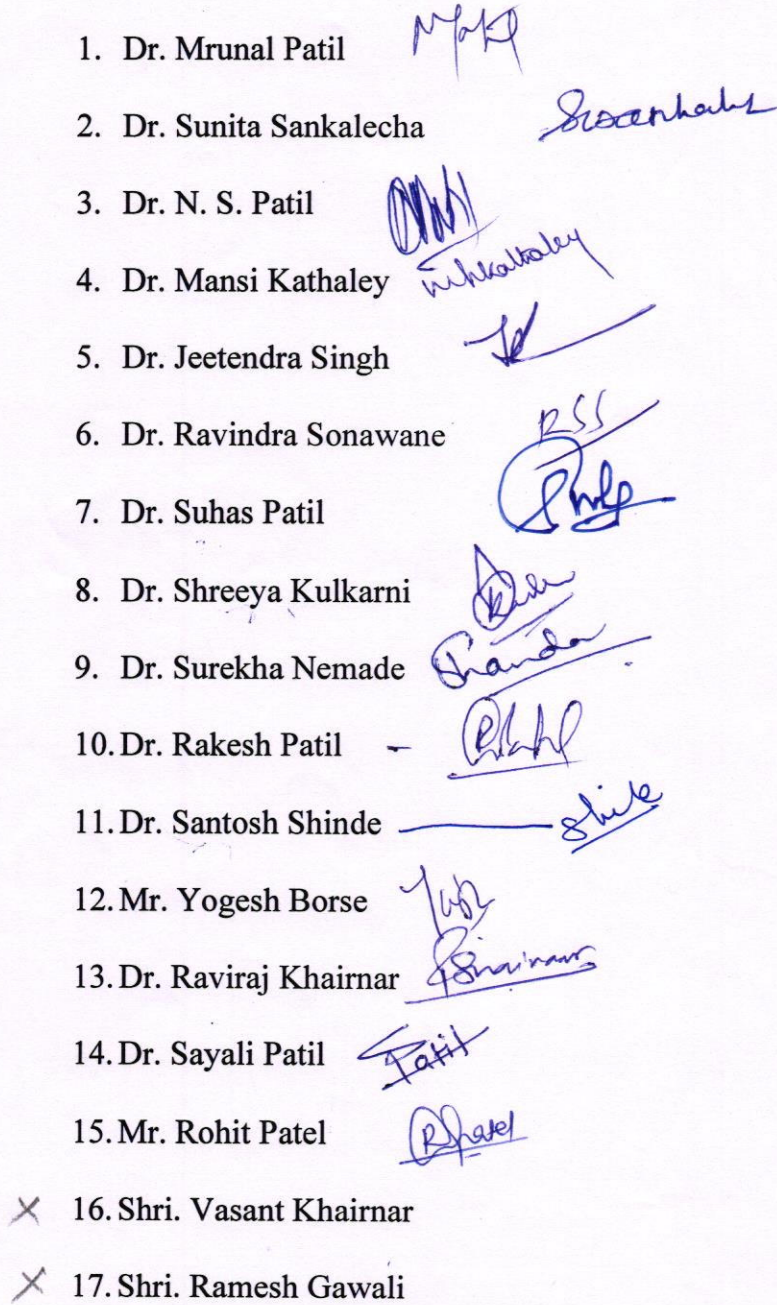 1. Dr. Mrunal Patil
2. Dr. Sunita Sankalecha
3. Dr. N. S. Patil
4. Dr. Mansi Kathaley
5. Dr. Jeetendra Singh
6. Dr. Ravindra Sonawane RSS
7. Dr. Suhas Patil
8. Dr. Shreeya Kulkarni
9. Dr. Surekha Nemade
10. Dr. Rakesh Patil -
11. Dr. Santosh Shinde
12. Mr. Yogesh Borse
13. Dr. Raviraj Khairnar
14. Dr. Sayali Patil Patil
15. Mr. Rohit Patel RSPatel
X 16. Shri. Vasant Khairnar
X 17. Shri. Ramesh Gawali